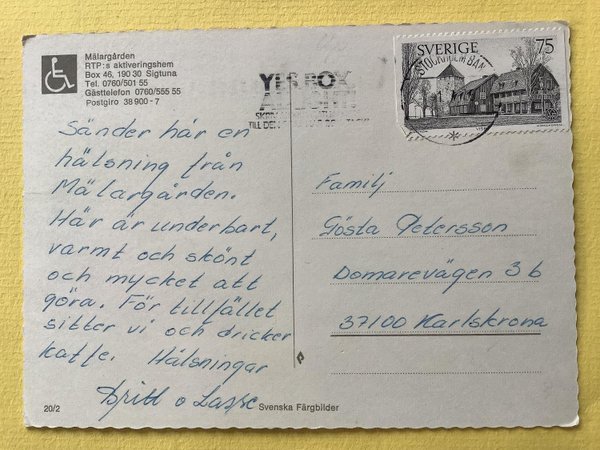 Mälargården
RTP:s aktiveringshem
Box 46, 190 30 Sigtuna
Tel. 0760/501 55
Gästtelefon 0760/555 55
Postgiro 38 900 - 7
SVERIGE 75
STOCKHOLM BAN
YES BOX
TILL DEN
Sänder här en
hälsning från
Mälargården.
Här är underbart,
varmt och skönt
och mycket att
göra. För tillfället
sitter vi och dricker
kaffe. Hälsningar
Britt o Lasse
Familj
Gösta Petersson
Domarevägen 3 b
37100 Karlskrona
20/2
Svenska Färgbilder